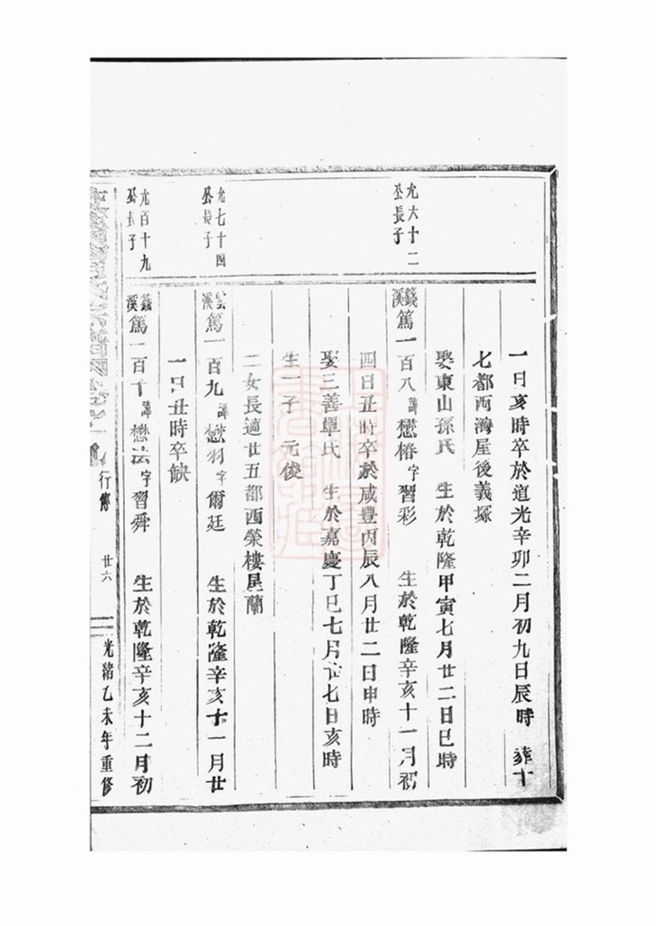 一日亥時卒於道光辛卯二月初九日辰時 葬十
七都西灣屋後義塚
娶東山孫氏 生於乾隆甲寅七月廿二日巳時
允六十二
公長子
錢溪篤一百八諱懋椿字習彩 生於乾隆辛亥十一月初
四日丑時卒於咸豐丙辰八月廿二日申時
娶三善單氏 生於嘉慶丁巳七月廿七日亥時
生一子 元俊
二女長適廿五都西榮樓星蘭
允七十四
公長子
雲溪篤一百九諱懋羽字爾廷 生於乾隆辛亥十一月廿
一日丑時卒缺
允百十九
公長子
錢溪篤一百十諱懋法字習舜 生於乾隆辛亥十二月初
行傳 廿六
光緒乙未年重修